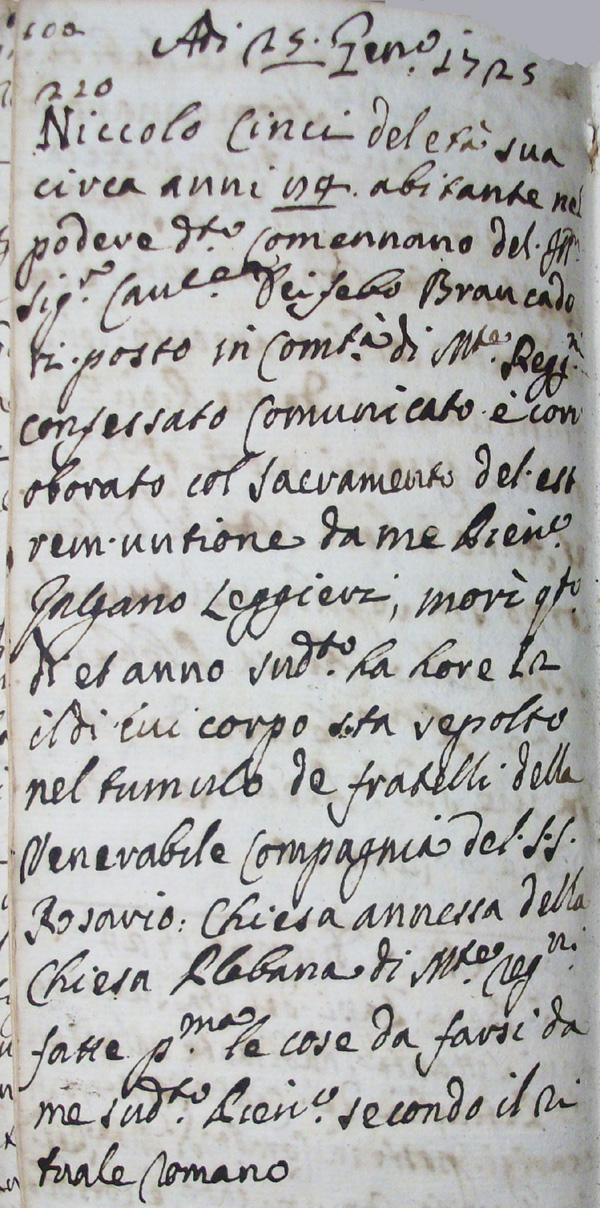 100
Adi 25. Genº. 1725
220
Niccolo Cinci del età sua
circa anni 74. abitante nel
podere dtº Comennano del. Ill
Sigr. Cau Deifebo Brancado
ri. posto in Comtà di Mte. Reggni
confessato Comunicato è con
oborato col Sacramento del. est
rem. untione da me Pieunº
Galgano Leggieri, morì qto
di et anno sudtº. ha hore 12
il di lui corpo sta sepolto
nel tumulo de fratelli della
Venerabile Compagnia del. S.S.
Rosario: Chiesa annessa della
Chiesa Plebana di Mte. Regni.
fatte pma. le cose da farsi da
me sudtº. Pieunº. secondo il Ri
tuale Romano